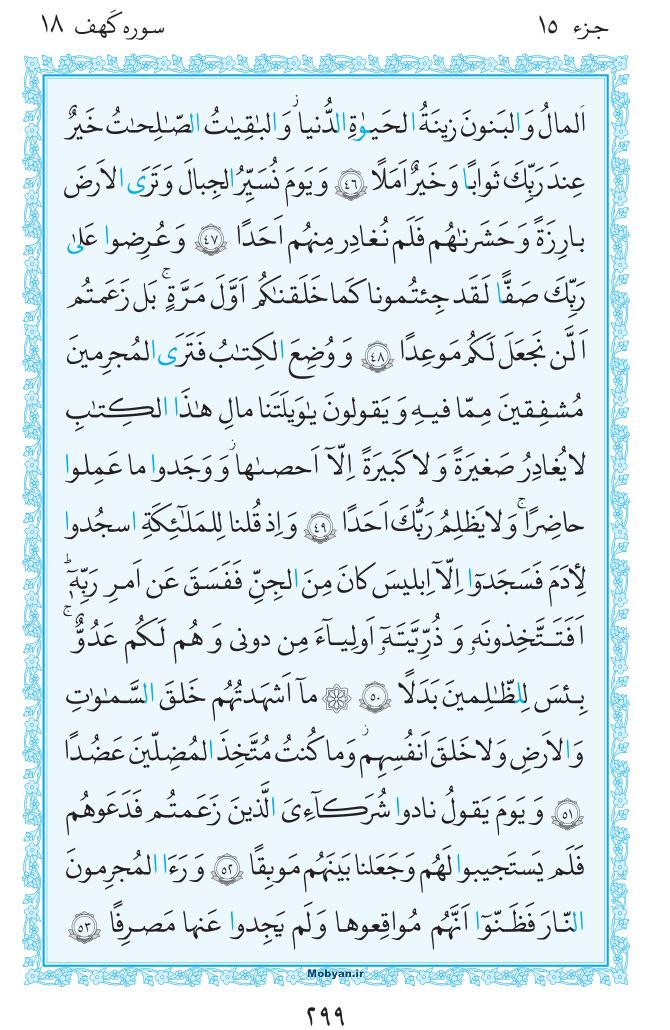 جزء ۱۵
سوره کَهف ۱۸
اَلمالُ وَ البَنونَ زینَةُ الحَیوٰةِ الدُّنیا ۖ وَ البٰقِیٰتُ الصّٰلِحٰتُ خَیرٌ
عِندَ رَبِّكَ ثَوابًا وَ خَیرٌ اَمَلًا ﴿۴۶﴾ وَ یَومَ نُسَیِّرُ الجِبالَ وَ تَرَی الاَرضَ
بارِزَةً وَ حَشَرنٰهُم فَلَم نُغادِر مِنهُم اَحَدًا ﴿۴۷﴾ وَ عُرِضوا عَلیٰ
رَبِّكَ صَفًّا لَقَد جِئتُمونا كَما خَلَقنٰكُم اَوَّلَ مَرَّةٍ ۚ بَل زَعَمتُم
اَلَّن نَجعَلَ لَكُم مَوعِدًا ﴿۴۸﴾ وَ وُضِعَ الكِتٰبُ فَتَرَی المُجرِمینَ
مُشفِقینَ مِمّا فیهِ وَ یَقولونَ یٰوَیلَتَنا مالِ هٰذَا الكِتٰبِ
لا یُغادِرُ صَغیرَةً وَ لا كَبیرَةً اِلّآ اَحصىٰها ۚ وَ وَجَدوا ما عَمِلوا
حاضِرًا ۗ وَ لا یَظلِمُ رَبُّكَ اَحَدًا ﴿۴۹﴾ وَ اِذ قُلنا لِلمَلٰٓئِكَةِ اسجُدوا
لِأدَمَ فَسَجَدوٓا اِلّآ اِبلیسَ كانَ مِنَ الجِنِّ فَفَسَقَ عَن اَمرِ رَبِّهٖٓ ۗ
اَفَتَتَّخِذونَهٗ وَ ذُرِّیَّتَهٗٓ اَولِیآءَ مِن دونی وَ هُم لَكُم عَدُوٌّ ۚ
بِئسَ لِلظّٰلِمینَ بَدَلًا ﴿۵۰﴾ ۞ مآ اَشهَدتُهُم خَلقَ السَّمٰوٰتِ
وَ الاَرضِ وَ لا خَلقَ اَنفُسِهِم ۖ وَ ما كُنتُ مُتَّخِذَ المُضِلّینَ عَضُدًا
﴿۵۱﴾ وَ یَومَ یَقولُ نادوا شُرَكآءِیَ الَّذینَ زَعَمتُم فَدَعَوهُم
فَلَم یَستَجیبوا لَهُم وَ جَعَلنا بَینَهُم مَوبِقًا ﴿۵۲﴾ وَ رَءَا المُجرِمونَ
النّارَ فَظَنّوٓا اَنَّهُم مُواقِعوها وَ لَم یَجِدوا عَنها مَصرِفًا ﴿۵۳﴾
Mobyan.ir
۲۹۹